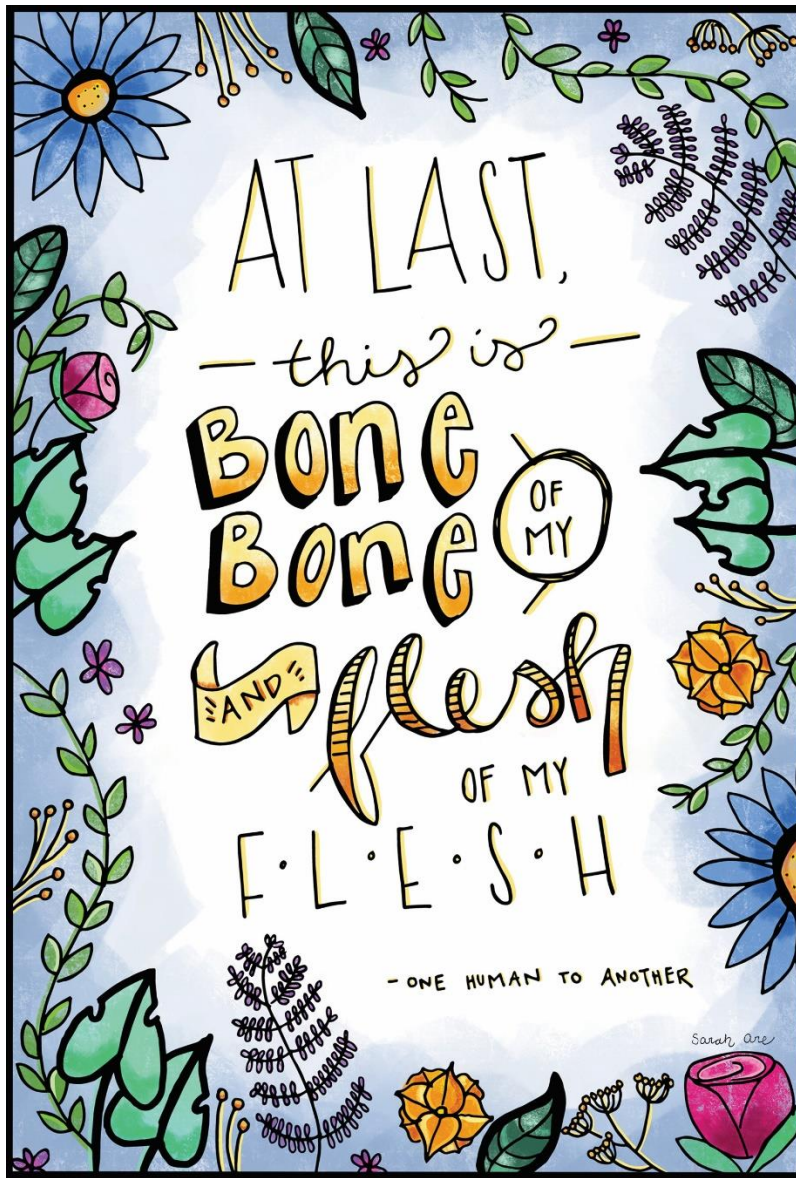 AT LAST,
this is
Bone
OF MY
Bone
AND flesh
OF MY
F·L·E·S·H
- ONE HUMAN TO ANOTHER
Sarah Are